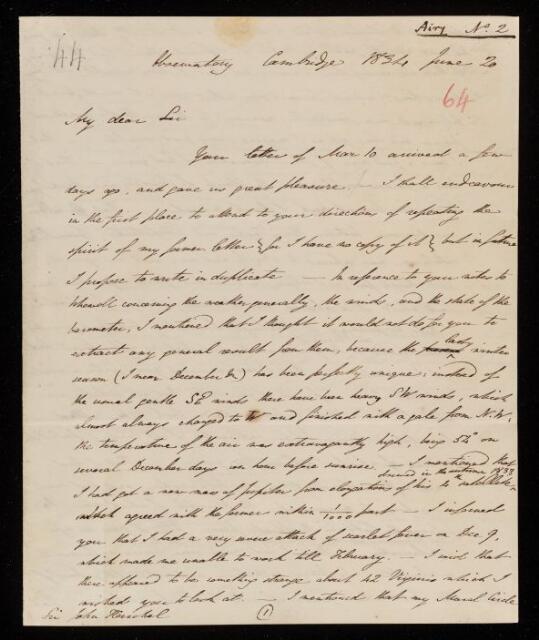 Airy No. 2
44
Observatory Cambridge 1834 June 20
64
My dear Sir
Your letter of Mar 10 arrived a few
days ago, and gave us great pleasure. — I shall endeavour
in the first place to attend to your direction of repeating the
spirit of my former letter {for I have no copy of it} but in future
I propose to write in duplicate — In reference to your notes to
Whewell concerning the weather generally, the winds, and the state of the
barometer, I mentioned that I thought it would not do for you to
extract any general result from them, because the early winter
season (I mean December &c) has been perfectly unique; instead of
the usual gentle SE winds there have been heavy SW winds, which
almost always changed to W and finished with a gale from N.W.
the temperature of the air was extravagantly high, being 54° on
several December days an hour before sunrise. — I mentioned that
I had got a new mass of Jupiter from elongations of his 4th satellite
observed in the autumn 1833
which agreed with the former within 1/1000 part — I informed
you that I had a very severe attack of scarlet fever on Dec 9,
which made me unable to work till February. — I said that
there appeared to be something strange about 42 Virginis which I
wished you to look at. — I mentioned that my Mural Circle
Sir John Herschel
(1)